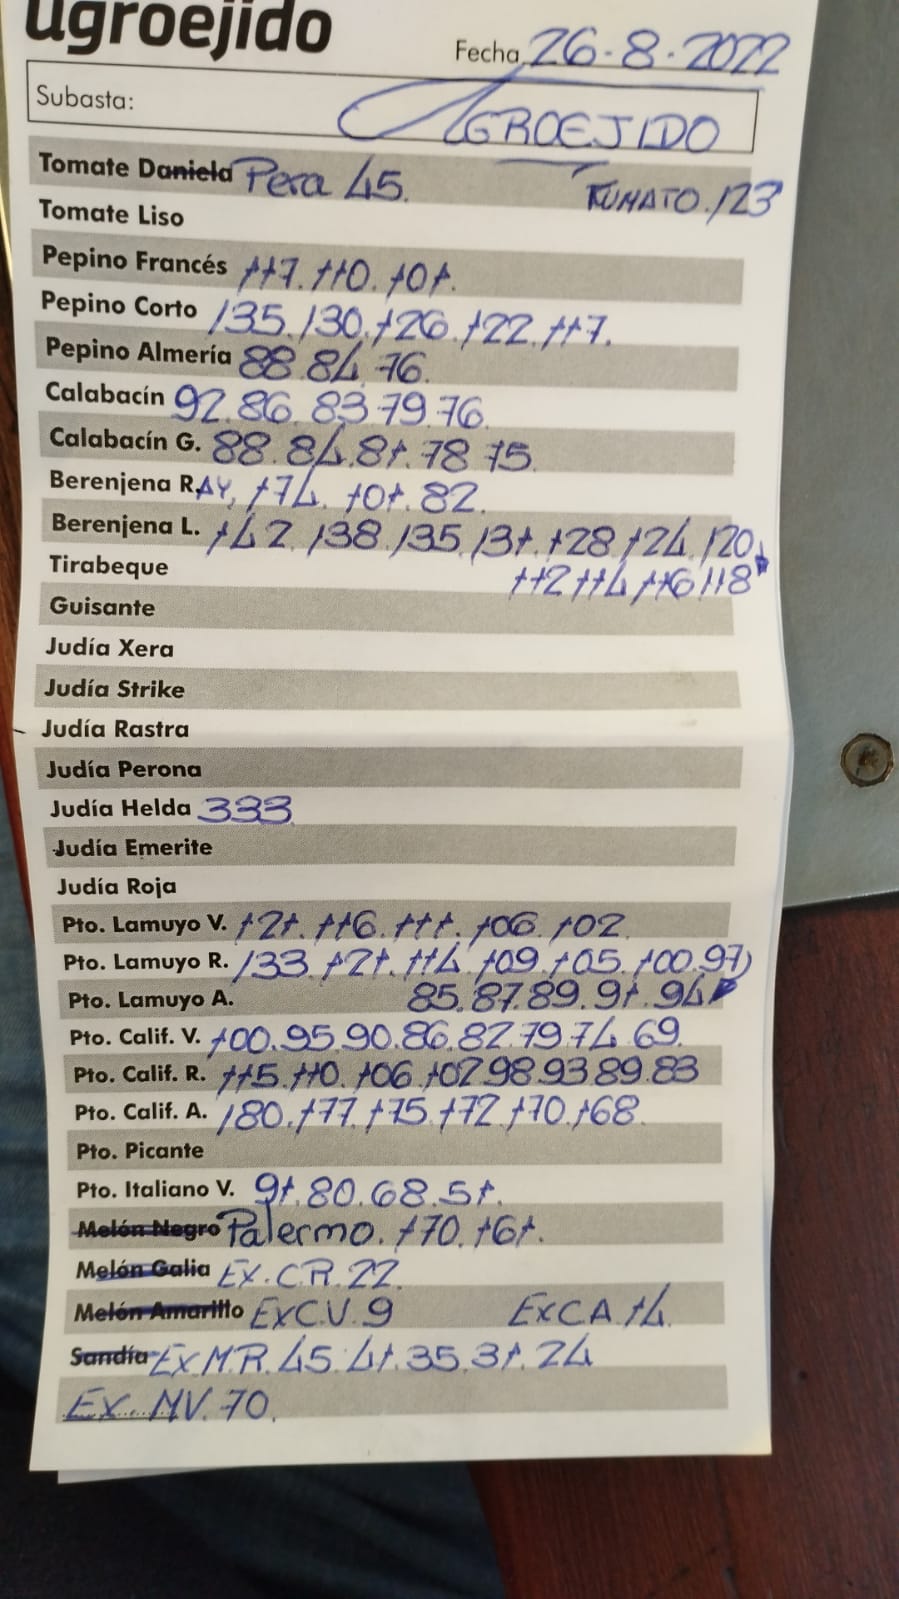 agroejido
Fecha 26-8-2022
Subasta: AGROEJIDO
Tomate Daniela Pera 45. KUMATO.123
Tomate Liso
Pepino Francés 117.110.101.
Pepino Corto 135.130.126.122.117.
Pepino Almería 88.84.76.
Calabacín 92.86.83.79.76.
Calabacín G. 88.84.81.78.75.
Berenjena RAY, 174.101.82.
Berenjena L. 142.138.135.131.128.124.120
Tirabeque 112 114 116 118
Guisante
Judía Xera
Judía Strike
Judía Rastra
Judía Perona
Judía Helda 333
Judía Emerite
Judía Roja
Pto. Lamuyo V. 121.116.111.106.102.
Pto. Lamuyo R. 133.121.114.109.105.100.97
Pto. Lamuyo A. 85.87.89.91.94
Pto. Calif. V. 100.95.90.86.82.79.74.69.
Pto. Calif. R. 115.110.106.102.98.93.89.83
Pto. Calif. A. 180.177.175.172.170.168.
Pto. Picante
Pto. Italiano V. 91.80.68.51.
Melón Negro Palermo.170.161.
Melón Galia EX.C.R.22.
Melón Amarillo EXC.V.9 EXCA.14.
Sandía EXM.R.45.41.35.31.24
EX. MV.70.